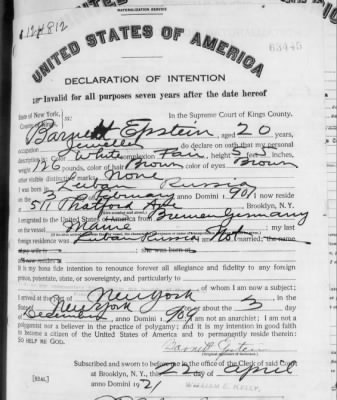 NATURALIZATION SERVICE
12#812
UNITED STATES OF AMERICA
63445
DECLARATION OF INTENTION
Invalid for all purposes seven years after the date hereof
State of New York,
In the Supreme Court of Kings County.
County of Kings,
Barnett Epstein, aged 20 years,
occupation Jeweller, do declare on oath that my personal
description is: Color White, complexion Fair, height 5 feet 3 inches,
weight 128 pounds, color of hair Brown, color of eyes Brown
other visible distinctive marks None
I was born in Luban Russia
on the 3 day of February, anno Domini 1901; I now reside
at 511 Thatford Ave, Brooklyn, N.Y.
I emigrated to the United States of America from Bremen Germany
on the vessel Maine; my last
foreign residence was Luban Russia Not married; the name
she was born at
It is my bona fide intention to renounce forever all allegiance and fidelity to any foreign
prince, potentate, state, or sovereignty, and particularly to
of whom I am now a subject;
I arrived at the port of New York, in the
New York on or about the 3 day
December, anno Domini 1909; I am not an anarchist; I am not a
polygamist nor a believer in the practice of polygamy; and it is my intention in good faith
to become a citizen of the United States of America and to permanently reside therein:
SO HELP ME GOD.
Barnett Epstein
(Original signature of declarant.)
Subscribed and sworn to before me in the office of the Clerk of said Court
at Brooklyn, N.Y., this 22 day of April
anno Domini 1921
[SEAL]
WILLIAM E. KELLY,